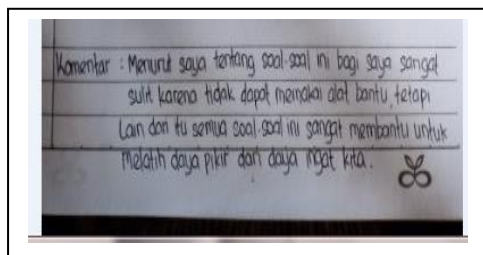 Komentar : Menurut saya tentang soal-soal ini bagi saya sangat
sulit karena tidak dapat memakai alat bantu, tetapi
Lain dari itu semua soal-soal ini sangat membantu untuk
melatih daya pikir dan daya ingat kita.